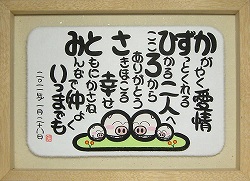 かがやく愛情
ずっとくれる
ひかる二人へ
こころから
ありがとう
さきほこる
幸せ
ともにかさね
みんなで仲よく
いつまでも